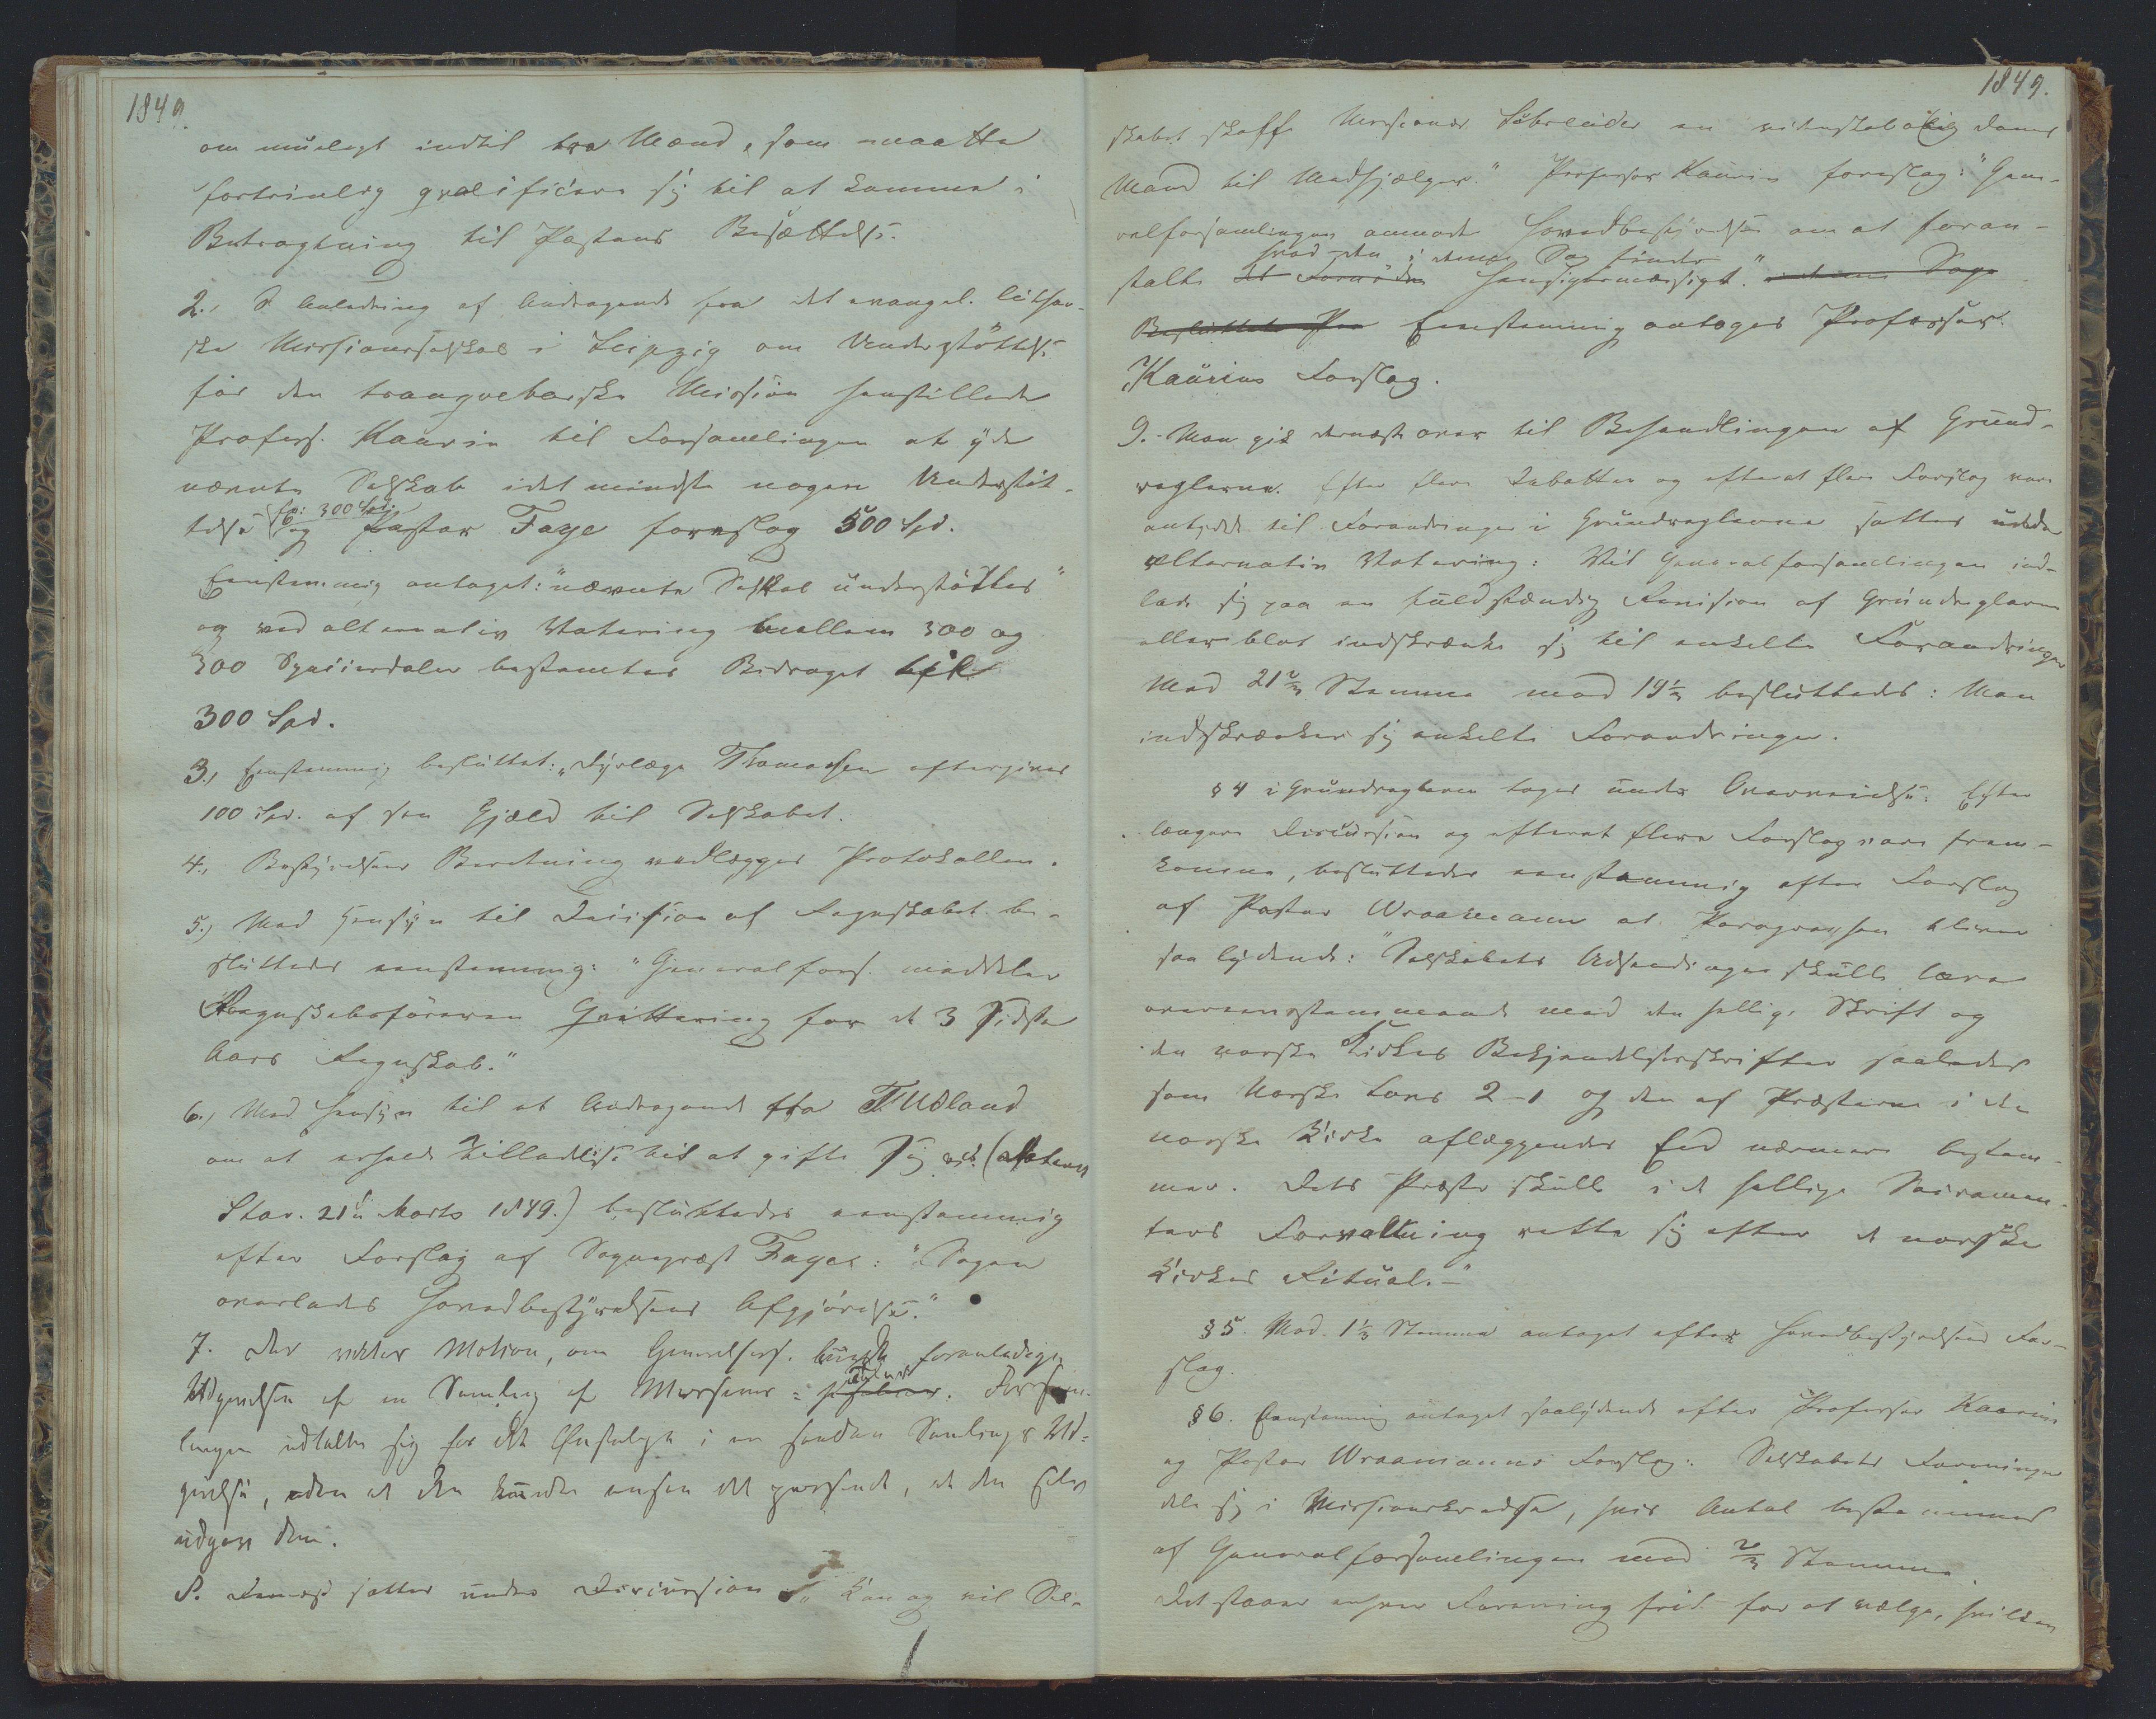 1849.
om muligt indtil tra Mænd, som maatte
fortrinlig qvalificere sig til at komme i
Betragtning til Postens Besættelse.
2., I Anledning af Andragende fra det evangel. luther-
ske Missionsselskab i Leipzig om Understöttelse
for den tranqvebarske Mission henstillede
Profess. Kaurin til Forsamlingen at yde
nævnte Selskab idet mindste nogen Understöt-
telse (fp: 300 Spd.) og Pastor Faye foreslog 500 Spd.
Eenstemmig antaget: "nævnte Selskab understöttes"
og ved alternativ Votering mellem 500 og
300 Speciesdaler bestemtes Bidraget til
300 Spd.
3., Eenstemmig besluttet: "Dyrlæge Thomassen eftergives
100 Spd. af sin Gjæld til Selskabet.
4., Bestyrelsens Beretning vedlægges Protokollen.
5.) Med Hensyn til Decision af Regnskabet be-
sluttedes eenstemmig: "Generalfors. meddeler
Regnskabsföreren Qvittering for de 3 sidste
Aars Regnskab."
6.) Med Hensyn til et Andragende fra T. Udland
om at erholde Tilladelse til at gifte sig
Stav. 21de Marts 1849.) besluttedes eenstemmig
efter Forslag af Sognepræst Faye: "Sagen
overlades Hovedbestyrelsens Afgjörelse."
7. Der vektes Motion, om Generalfors. burde foranledige
Udgivelsen af en Samling af Missions= Forsam-
lingen udtalte sig for det Önskelige i en saadan Samlings Ud=
givelse, uden at den kunde ansee det passende, at den selv
udgav den.
8. Dernæst sattes under Discussion "Kan og vil Sel-
1849.
skabet skaffe Missionær Schreuder en videnskabelig dannet
Mand til Medhjælper." Professor Kaurin foreslog: "Gene-
ralforsamlingen anmoder Hovedbestyrelsen om at foran-
stalte det Fornödne hvad den i denne Sag finder hensigtsmæssigt." i denne Sag
Besluttet Eenstemmig antoges Professor
Kaurins Forslag.
9. Man gik dernæst over til Behandlingen af Grund-
reglerne. Efter flere Debatter og efterat flere Forslag vare
antydede til Forandringer i Grundreglerne sattes under
alternativ Votering: Vil Generalforsamlingen ind-
lade sig paa en fuldstændig Revision af Grundreglerne
eller blot indskrænke sig til enkelte Forandringer
Med 21 2/3 Stemme mod 19 1/3 besluttedes: Man
indskrænker sig enkelte Forandringer.
§ 4 i Grundreglerne toges under Overveielse. Efter
længere Discussion og efterat flere Forslag vare frem-
komne, besluttedes eenstemmig efter Forslag
af Pastor Wraamann at Paragraphen bliver
saa lydende: "Selskabets Udsendinger skulle lære
overeensstemmende med den hellige Skrift og
den norske Kirkes Bekjendelsesskrifter saaledes
som Norske Lovs 2-1 og den af Præsterne i den
norske Kirke aflæggendes Eed nærmere bestem-
mer. Dets Præster skulle i de hellige Sacramen-
ters Forvaltning rette sig efter den norske
Kirkes Ritual."
§ 5. Mod. 1 1/3 Stemme antaget efter Hovedbestyrelsens For-
slag.
§ 6. Eenstemmig antaget saalydende efter Professor Kaurins
og Pastor Wraamanns Forslag: Selskabets Foreninger
dele sig i Missionskredse, hvis Antal bestemmes
af Generalforsamlingen med 2/3 Stemme.
Det staaer enhver Forening frit for at vælge, hvilken